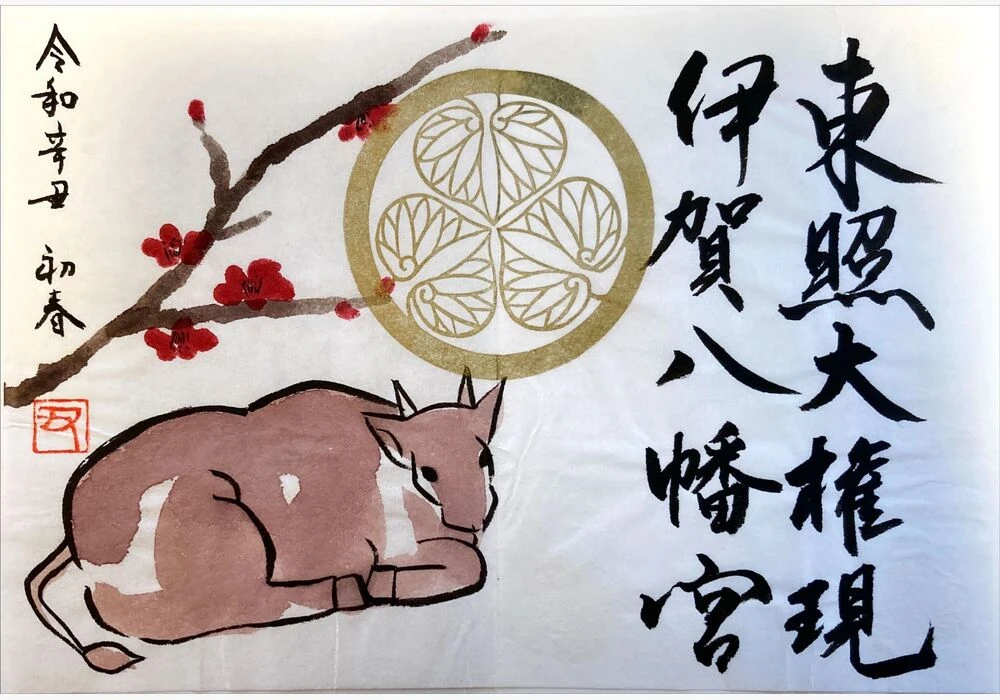 東照大権現
伊賀八幡宮
令和辛丑 初春